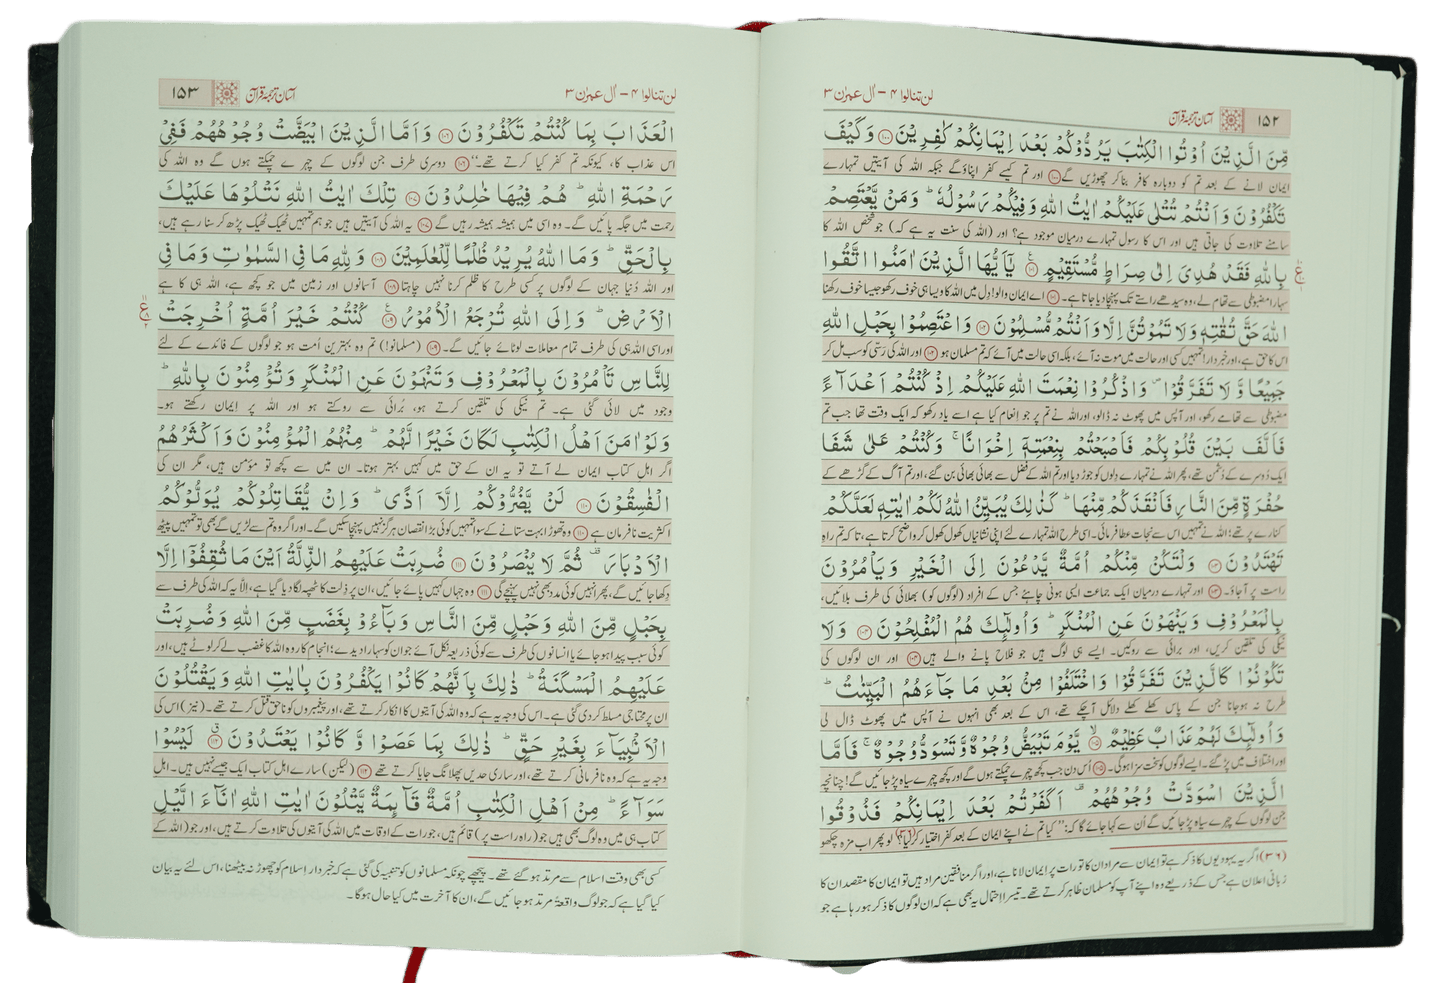 ۱۵۲
آسان ترجمۂ قرآن
لن تنالوا ۴ – اٰل عمرٰن ۳
مِّنَ الَّذِيْنَ اُوْتُوا الْكِتٰبَ يَرُدُّوْكُمْ بَعْدَ اِيْمَانِكُمْ كٰفِرِيْنَ ۝۱۰۰ وَكَيْفَ
ایمان لانے کے بعد تم کو دوبارہ کافر بنا کر چھوڑیں گے ۝۱۰۰ اور تم کیسے کفر اپناؤ گے جبکہ اللہ کی آیتیں تمہارے
تَكْفُرُوْنَ وَاَنْتُمْ تُتْلٰى عَلَيْكُمْ اٰيٰتُ اللّٰهِ وَفِيْكُمْ رَسُوْلُهٗ ؕ وَمَنْ يَّعْتَصِمْ
سامنے تلاوت کی جاتی ہیں اور اس کا رسول تمہارے درمیان موجود ہے؟ اور (اللہ کی سنت یہ ہے کہ) جو شخص اللہ کا
بِاللّٰهِ فَقَدْ هُدِىَ اِلٰى صِرَاطٍ مُّسْتَقِيْمٍ ۝۱۰۱ يٰۤاَيُّهَا الَّذِيْنَ اٰمَنُوا اتَّقُوا
سہارا مضبوطی سے تھام لے، وہ سیدھے راستے تک پہنچا دیا جاتا ہے۔ ۝۱۰۱ اے ایمان والو! دل میں اللہ کا ویسا ہی خوف رکھو جیسا خوف رکھنا
اللّٰهَ حَقَّ تُقٰتِهٖ وَلَا تَمُوْتُنَّ اِلَّا وَاَنْتُمْ مُّسْلِمُوْنَ ۝۱۰۲ وَاعْتَصِمُوْا بِحَبْلِ اللّٰهِ
اس کا حق ہے، اور خبردار! تمہیں کسی اور حالت میں موت نہ آئے، بلکہ اسی حالت میں آئے کہ تم مسلمان ہو ۝۱۰۲ اور اللہ کی رسّی کو سب مل کر
جَمِيْعًا وَّلَا تَفَرَّقُوْا ۪ وَاذْكُرُوْا نِعْمَتَ اللّٰهِ عَلَيْكُمْ اِذْ كُنْتُمْ اَعْدَآءً
مضبوطی سے تھامے رکھو، اور آپس میں پھوٹ نہ ڈالو، اور اللہ نے تم پر جو اِنعام کیا ہے اسے یاد رکھو کہ ایک وقت تھا جب تم
فَاَلَّفَ بَيْنَ قُلُوْبِكُمْ فَاَصْبَحْتُمْ بِنِعْمَتِهٖۤ اِخْوَانًا ۚ وَكُنْتُمْ عَلٰى شَفَا
ایک دُوسرے کے دُشمن تھے، پھر اللہ نے تمہارے دِلوں کو جوڑ دیا اور تم اللہ کے فضل سے بھائی بھائی بن گئے، اور تم آگ کے گڑھے کے
حُفْرَةٍ مِّنَ النَّارِ فَاَنْقَذَكُمْ مِّنْهَا ؕ كَذٰلِكَ يُبَيِّنُ اللّٰهُ لَكُمْ اٰيٰتِهٖ لَعَلَّكُمْ
کنارے پر تھے؛ اللہ نے تمہیں اس سے نجات عطا فرمائی۔ اسی طرح اللہ تمہارے لئے اپنی نشانیاں کھول کھول کر واضح کرتا ہے، تاکہ تم راہِ
تَهْتَدُوْنَ ۝۱۰۳ وَلْتَكُنْ مِّنْكُمْ اُمَّةٌ يَّدْعُوْنَ اِلَى الْخَيْرِ وَيَاْمُرُوْنَ
راست پر آجاؤ۔ ۝۱۰۳ اور تمہارے درمیان ایک جماعت ایسی ہونی چاہئے جس کے افراد (لوگوں کو) بھلائی کی طرف بلائیں،
بِالْمَعْرُوْفِ وَيَنْهَوْنَ عَنِ الْمُنْكَرِ ؕ وَاُولٰٓئِكَ هُمُ الْمُفْلِحُوْنَ ۝۱۰۴ وَلَا
نیکی کی تلقین کریں، اور برائی سے روکیں۔ ایسے ہی لوگ ہیں جو فلاح پانے والے ہیں ۝۱۰۴ اور ان لوگوں کی
تَكُوْنُوْا كَالَّذِيْنَ تَفَرَّقُوْا وَاخْتَلَفُوْا مِنْۢ بَعْدِ مَا جَآءَهُمُ الْبَيِّنٰتُ ؕ
طرح نہ ہوجانا جن کے پاس کھلے کھلے دلائل آچکے تھے، اس کے بعد بھی انہوں نے آپس میں پھوٹ ڈال لی
وَاُولٰٓئِكَ لَهُمْ عَذَابٌ عَظِيْمٌ ۝۱۰۵ يَّوْمَ تَبْيَضُّ وُجُوْهٌ وَّتَسْوَدُّ وُجُوْهٌ ۚ فَاَمَّا
اور اختلاف میں پڑ گئے۔ ایسے لوگوں کو سخت سزا ہوگی۔ ۝۱۰۵ اُس دن جب کچھ چہرے چمکتے ہوں گے اور کچھ چہرے سیاہ پڑ جائیں گے! چنانچہ
الَّذِيْنَ اسْوَدَّتْ وُجُوْهُهُمْ ۟ اَكَفَرْتُمْ بَعْدَ اِيْمَانِكُمْ فَذُوْقُوا
جن لوگوں کے چہرے سیاہ پڑ جائیں گے اُن سے کہا جائے گا کہ: ”کیا تم نے اپنے ایمان کے بعد کفر اختیار کر لیا؟ (۳۶) لو پھر اب مزہ چکھو
(۳۶) اگر یہ یہودیوں کا ذکر ہے تو اِیمان سے مراد ان کا تورات پر ایمان لانا ہے، اور اگر منافقین مراد ہیں تو ایمان کا مقصد ان کا
زبانی اعلان ہے جس کے ذریعے وہ اپنے آپ کو مسلمان ظاہر کرتے تھے۔ تیسرا احتمال یہ بھی ہے کہ ان لوگوں کا ذکر ہو رہا ہے جو
لن تنالوا ۴ – اٰل عمرٰن ۳
آسان ترجمۂ قرآن
۱۵۳
الْعَذَابَ بِمَا كُنْتُمْ تَكْفُرُوْنَ ۝۱۰۶ وَاَمَّا الَّذِيْنَ ابْيَضَّتْ وُجُوْهُهُمْ فَفِىْ
اس عذاب کا، کیونکہ تم کفر کیا کرتے تھے۔“ ۝۱۰۶ دوسری طرف جن لوگوں کے چہرے چمکتے ہوں گے وہ اللہ کی
رَحْمَةِ اللّٰهِ ؕ هُمْ فِيْهَا خٰلِدُوْنَ ۝۱۰۷ تِلْكَ اٰيٰتُ اللّٰهِ نَتْلُوْهَا عَلَيْكَ
رحمت میں جگہ پائیں گے۔ وہ اسی میں ہمیشہ ہمیشہ رہیں گے ۝۱۰۷ یہ اللہ کی آیتیں ہیں جو ہم تمہیں ٹھیک ٹھیک پڑھ کر سنا رہے ہیں،
بِالْحَقِّ ؕ وَمَا اللّٰهُ يُرِيْدُ ظُلْمًا لِّلْعٰلَمِيْنَ ۝۱۰۸ وَلِلّٰهِ مَا فِى السَّمٰوٰتِ وَمَا فِى
اور اللہ دُنیا جہان کے لوگوں پر کسی طرح کا ظلم کرنا نہیں چاہتا ۝۱۰۸ آسمانوں اور زمین میں جو کچھ ہے، اللہ ہی کا ہے
الْاَرْضِ ؕ وَاِلَى اللّٰهِ تُرْجَعُ الْاُمُوْرُ ۝۱۰۹ كُنْتُمْ خَيْرَ اُمَّةٍ اُخْرِجَتْ
اور اسی اللہ ہی کی طرف تمام معاملات لوٹائے جائیں گے۔ ۝۱۰۹ (مسلمانو!) تم وہ بہترین اُمت ہو جو لوگوں کے فائدے کے لئے
لِلنَّاسِ تَاْمُرُوْنَ بِالْمَعْرُوْفِ وَتَنْهَوْنَ عَنِ الْمُنْكَرِ وَتُؤْمِنُوْنَ بِاللّٰهِ ؕ
وجود میں لائی گئی ہے۔ تم نیکی کی تلقین کرتے ہو، بُرائی سے روکتے ہو اور اللہ پر ایمان رکھتے ہو۔
وَلَوْ اٰمَنَ اَهْلُ الْكِتٰبِ لَكَانَ خَيْرًا لَّهُمْ ؕ مِنْهُمُ الْمُؤْمِنُوْنَ وَاَكْثَرُهُمُ
اگر اہل کتاب ایمان لے آتے تو یہ ان کے حق میں کہیں بہتر ہوتا۔ ان میں سے کچھ تو مؤمن ہیں، مگر ان کی
الْفٰسِقُوْنَ ۝۱۱۰ لَنْ يَّضُرُّوْكُمْ اِلَّاۤ اَذًى ؕ وَاِنْ يُّقَاتِلُوْكُمْ يُوَلُّوْكُمُ
اکثریت نافرمان ہے ۝۱۱۰ وہ تھوڑا بہت ستانے کے سوا تمہیں کوئی بڑا نقصان ہرگز نہیں پہنچا سکیں گے۔ اور اگر وہ تم سے لڑیں گے بھی تو تمہیں پیٹھ
الْاَدْبَارَ ۟ ثُمَّ لَا يُنْصَرُوْنَ ۝۱۱۱ ضُرِبَتْ عَلَيْهِمُ الذِّلَّةُ اَيْنَ مَا ثُقِفُوْۤا اِلَّا
دِکھا جائیں گے، پھر انہیں کوئی مدد بھی نہیں پہنچے گی ۝۱۱۱ وہ جہاں کہیں پائے جائیں، ان پر ذلت کا ٹھپہ لگا دیا گیا ہے، اِلَّا یہ کہ اللہ کی طرف سے
بِحَبْلٍ مِّنَ اللّٰهِ وَحَبْلٍ مِّنَ النَّاسِ وَبَآءُوْ بِغَضَبٍ مِّنَ اللّٰهِ وَضُرِبَتْ
کوئی سبب پیدا ہو جائے یا انسانوں کی طرف سے کوئی ذریعہ نکل آئے جو ان کو سہارا دیدے؛ انجام کار وہ اللہ کا غضب لے کر لوٹے ہیں، اور
عَلَيْهِمُ الْمَسْكَنَةُ ؕ ذٰلِكَ بِاَنَّهُمْ كَانُوْا يَكْفُرُوْنَ بِاٰيٰتِ اللّٰهِ وَيَقْتُلُوْنَ
ان پر محتاجی مسلط کر دی گئی ہے۔ اس کی وجہ یہ ہے کہ وہ اللہ کی آیتوں کا انکار کرتے تھے، اور پیغمبروں کو ناحق قتل کرتے تھے۔ (نیز) اس کی
الْاَنْۢبِيَآءَ بِغَيْرِ حَقٍّ ؕ ذٰلِكَ بِمَا عَصَوْا وَّكَانُوْا يَعْتَدُوْنَ ۝۱۱۲ لَيْسُوْا
وجہ یہ ہے کہ وہ نافرمانی کرتے تھے، اور ساری حدیں پھلانگ جایا کرتے تھے ۝۱۱۲ (لیکن) سارے اہل کتاب ایک جیسے نہیں ہیں۔ اہل
سَوَآءً ؕ مِنْ اَهْلِ الْكِتٰبِ اُمَّةٌ قَآئِمَةٌ يَّتْلُوْنَ اٰيٰتِ اللّٰهِ اٰنَآءَ الَّيْلِ
کتاب ہی میں وہ لوگ بھی ہیں جو (راہِ راست پر) قائم ہیں، جو رات کے اوقات میں اللہ کی آیتوں کی تلاوت کرتے ہیں، اور جو (اللہ کے
کسی بھی وقت اسلام سے مرتد ہو گئے تھے۔ پیچھے چونکہ مسلمانوں کو تنبیہ کی گئی ہے کہ خبردار اِسلام کو چھوڑ نہ بیٹھنا، اس لئے یہ بیان
کیا گیا ہے کہ جو لوگ واقعۃً مرتد ہو جائیں گے، ان کا آخرت میں کیا حال ہوگا۔